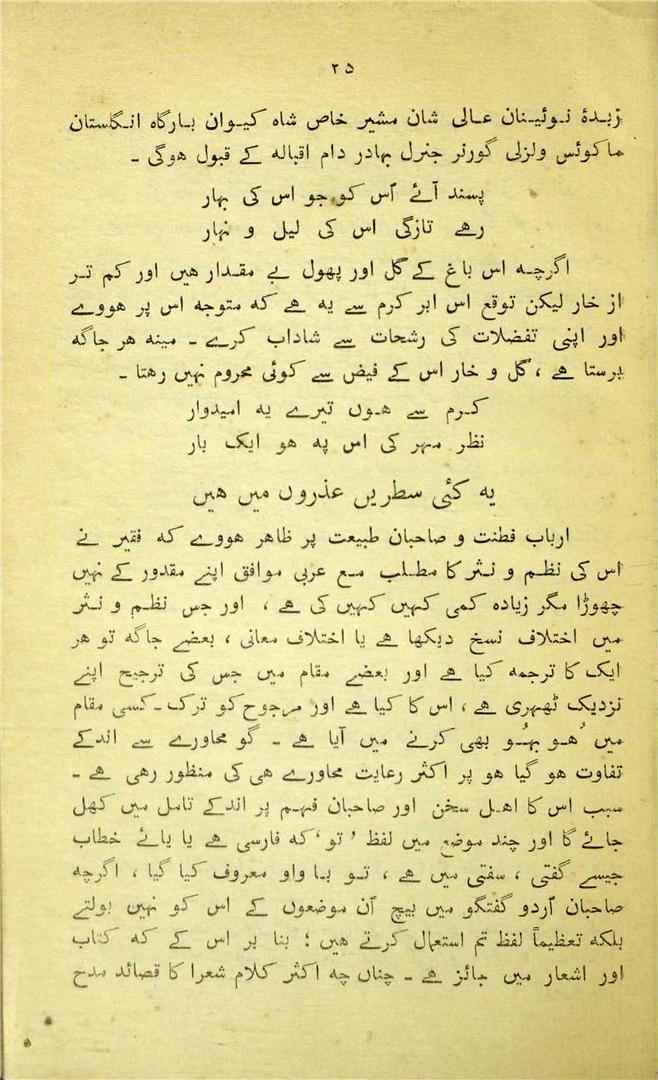 ۲۵
زبدۂ نوئینان عالی شان مشیر خاص شاہ کیوان بارگاہ انگلستان
مارکوئس ولزلی گورنر جنرل بہادر دام اقبالہ کے قبول ہوگی ۔
پسند آئے اُس کو جو اس کی بہار
رہے تازگی اس کی لیل و نہار
اگرچہ اس باغ کے گل اور پھول بے مقدار ہیں اور کم تر
از خار لیکن توقع اس ابر کرم سے یہ ہے کہ متوجہ اس پر ہووے
اور اپنی تفضلات کی رشحات سے شاداب کرے ۔ مینہ ہر جاگہ
برستا ہے ، گل و خار اس کے فیض سے کوئی محروم نہیں رہتا ۔
کرم سے ہوں تیرے یہ امیدوار
نظر مہر کی اس پہ ہو ایک بار
یہ کئی سطریں عذروں میں ہیں
ارباب فطنت و صاحبان طبیعت پر ظاہر ہووے کہ فقیر نے
اس کی نظم و نثر کا مطلب مع عربی موافق اپنے مقدور کے نہیں
چھوڑا مگر زیادہ کمی کہیں کہیں کی ہے ، اور جس نظم و نثر
میں اختلاف نسخ دیکھا ہے یا اختلاف معانی ، بعضے جاگہ تو ہر
ایک کا ترجمہ کیا ہے اور بعضے مقام میں جس کی ترجیح اپنے
نزدیک ٹھہری ہے ، اس کا کیا ہے اور مرجوح کو ترک ۔ کسی مقام
میں ہو بہو بھی کرنے میں آیا ہے ۔ گو محاورے سے اندکے
تفاوت ہو گیا ہو پر اکثر رعایت محاورے ہی کی منظور رہی ہے ۔
سبب اس کا اہل سخن اور صاحبان فہم پر اندکے تامل میں کھل
جائے گا اور چند موضع میں لفظ ' تو ' کہ فارسی ہے یا یائے خطاب
جیسے گفتی ، سفتی میں ہے ، تو با واو معروف کیا گیا ، اگرچہ
صاحبان اُردو گفتگو میں بیچ اُن موضعوں کے اس کو نہیں بولتے
بلکہ تعظیماً لفظ تم استعمال کرتے ہیں ؛ بنا بر اس کے کہ کتاب
اور اشعار میں جائز ہے ۔ چناں چہ اکثر کلام شعرا کا قصائد مدح